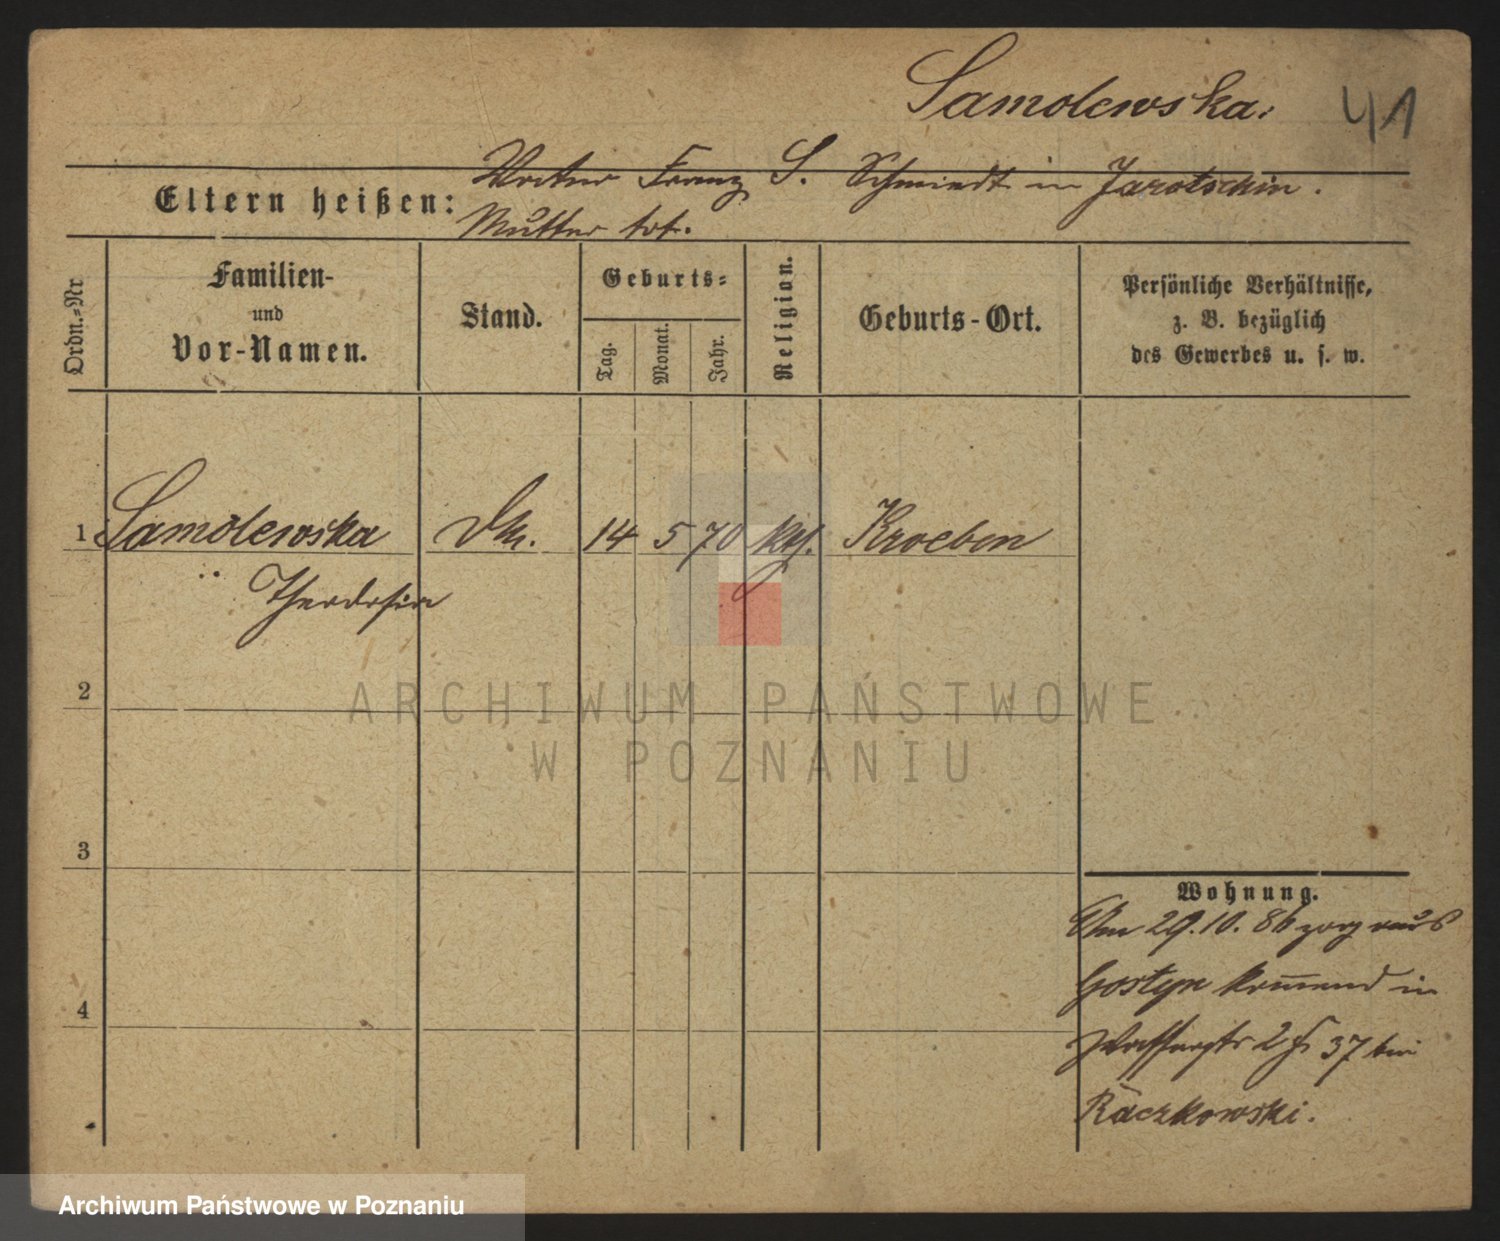 Samolewska.
41
Vater Franz S. Schmiedt in Jarotschin.
Eltern heißen:
Mutter tot.
Ordn.=Nr
Familien-
und
Vor-Namen.
Stand.
Geburts=
Tag.
Monat.
Jahr.
Religion.
Geburts-Ort.
Persönliche Verhältnisse,
z. B. bezüglich
des Gewerbes u. s. w.
1 Samolewska 14 5 70 Kroeben
Theodosia
2
ARCHIWUM PAŃSTWOWE
W POZNANIU
3
Wohnung.
Am 29.10.86 zog aus
Gostyn kommend in
4
37 bei
Raczkowski.
Archiwum Państwowe w Poznaniu